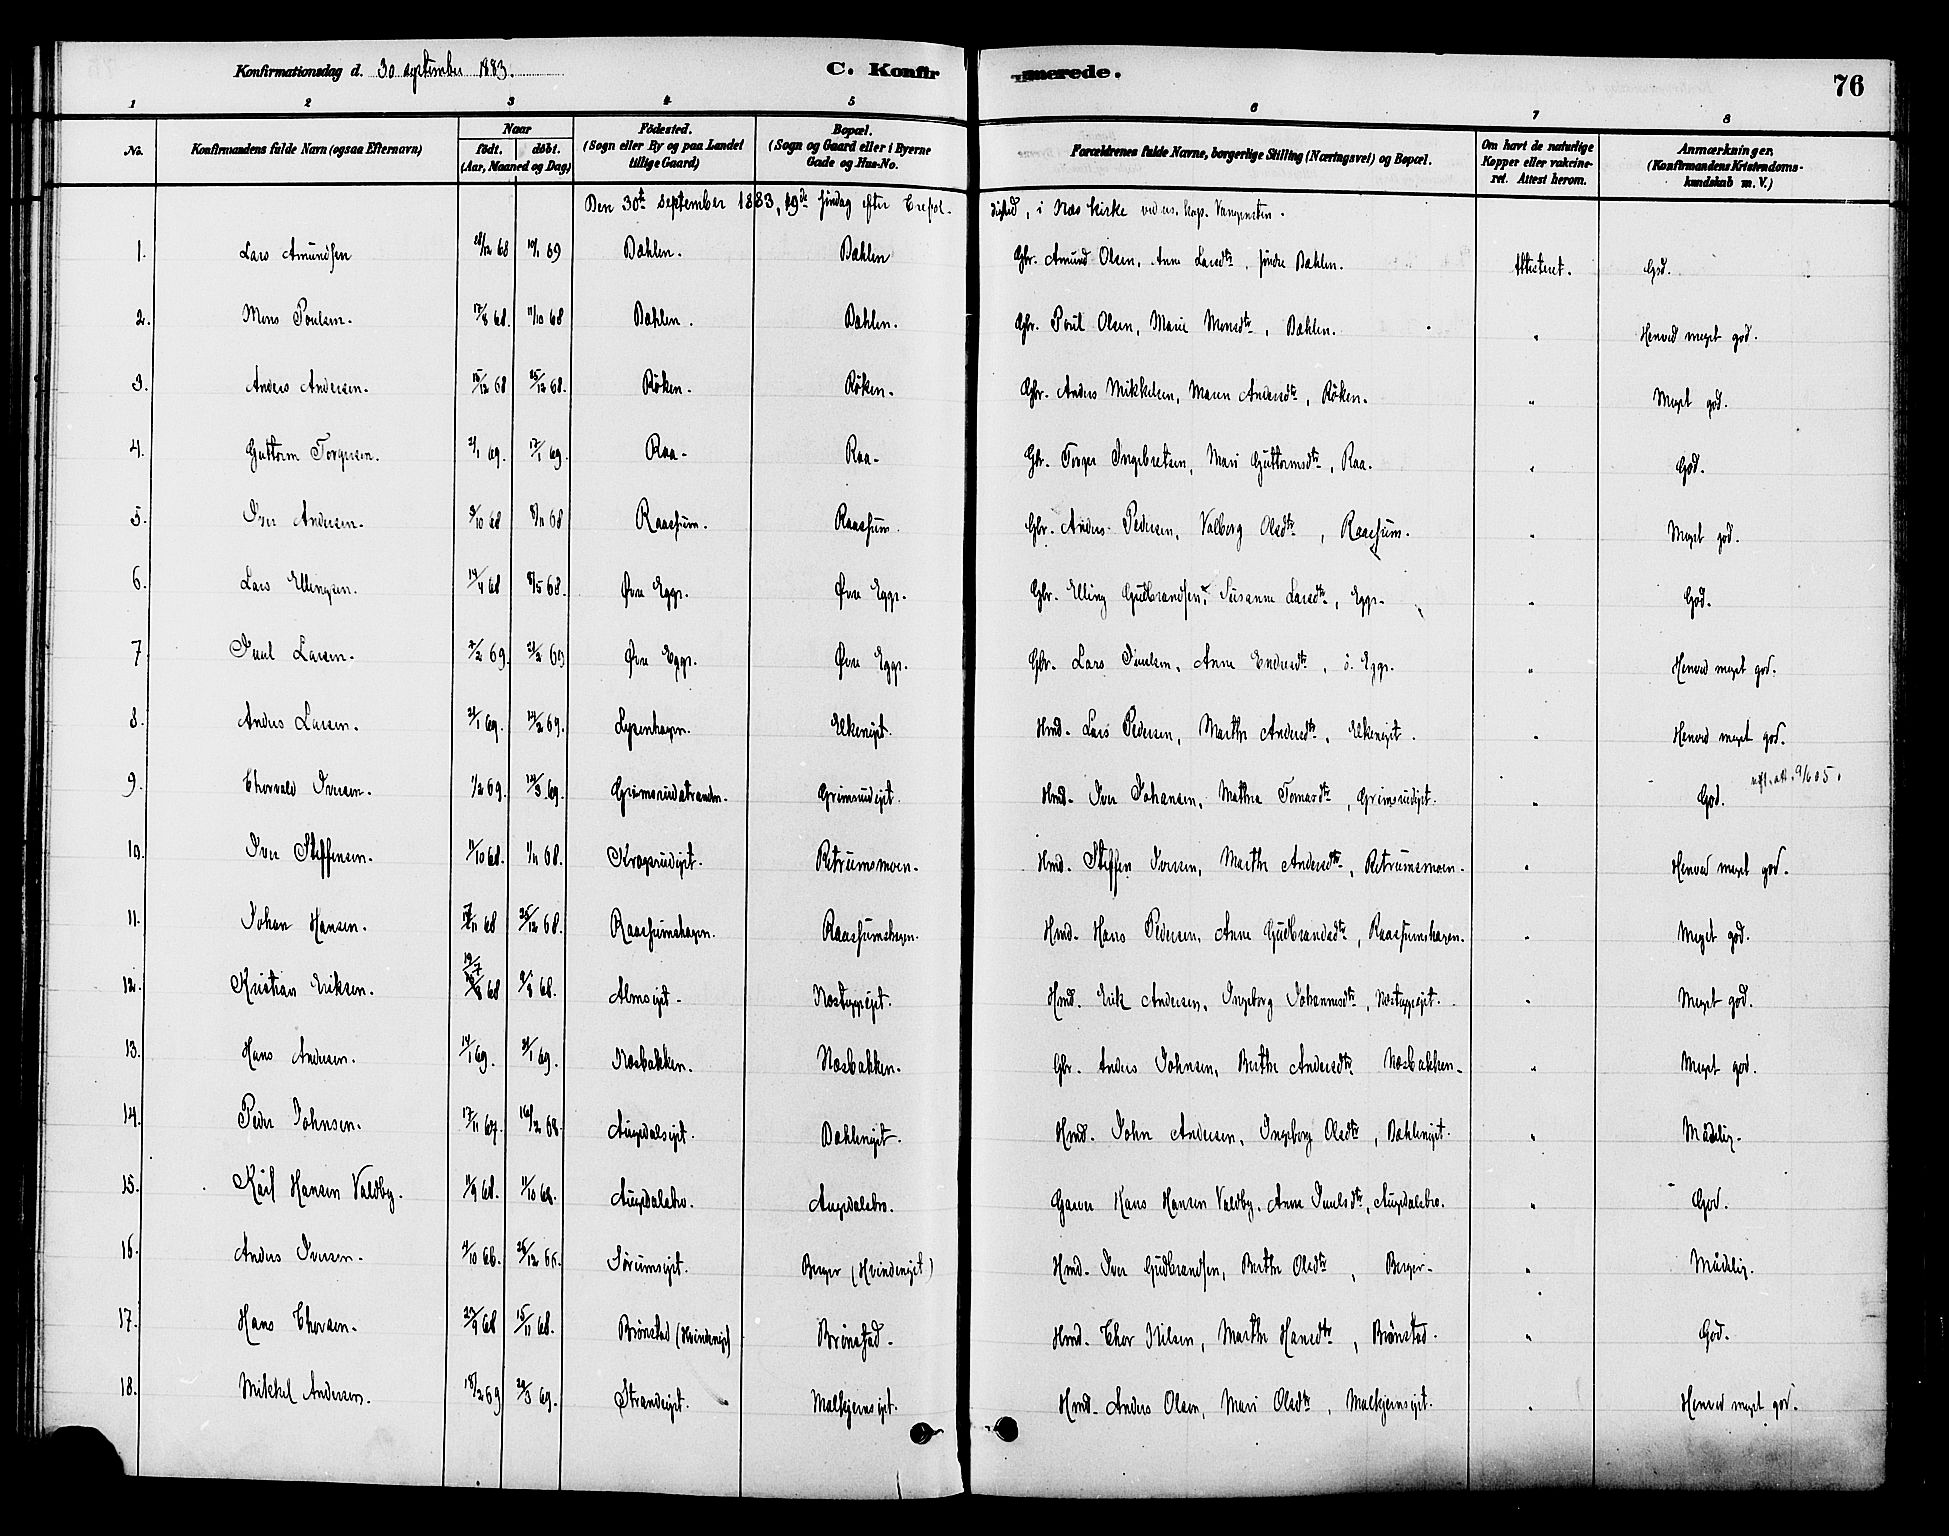 Konfirmationsdag d. 30 september 1883. C. Konfirmerede. 76
1 2 3 4 5 6 7 8
No. Konfirmandens fulde Navn (ogsaa Efternavn) Naar födt. döbt. (Aar, Maaned og Dag) Födested. (Sogn eller By og paa Landet tillige Gaard) Bopæl. (Sogn og Gaard eller i Byerne Gade og Hus-No. Forældrenes fulde Navne, borgerlige Stilling (Næringsvei) og Bopæl. Om havt de naturlige Kopper eller vakcineret. Attest herom. Anmærkninger, (Konfirmandens Kristendomskundskab m. V.)
Den 30te september 1883, 19de søndag efter Trefoldighed, i Næs kirke ved res. kap. Vangensten.
1. Lars Amundsen 28/12 68 10/1 69 Dæhlen. Dæhlen Gbr. Amund Olsen, Anne Larsdtr, søndre Dæhlen. Attesteret. God.
2. Mons Poulsen. 17/8 68. 11/10 68 Dæhlen. Dæhlen. Gbr. Poul Olsen, Marie Monsdtr, Dæhlen. " Henved meget god.
3. Anders Andersen. 15/12 68 25/12 68. Røken. Røken. Gbr. Anders Mikkelsen, Maren Andersdtr, Røken. " Meget god.
4. Guttorm Torgersen. 2/1 69. 17/1 69. Raa. Raa. Gbr. Torger Ingebretsen, Mari Guttormsdtr, Raa. " God.
5. Iver Andersen. 9/10 68 8/11 68 Raassum. Raassum. Gbr. Anders Pedersen, Valborg Olsdtr, Raassum. " Meget god.
6. Lars Ellingsen. 14/4 68 8/5 68. Øvre Egge. Øvre Egge. Gbr. Elling Gudbrandsen, Susanne Larsdtr, Egge. " God.
7. Juul Larsen. 2/2 69. 21/2 69 Øvre Egge. Øvre Egge. Gbr. Lars Juulsen, Anne Endresdtr, ö. Egge. " Henved meget god.
8. Anders Larsen. 2/1 69. 14/2 69. Lysenhagen. Elkeneiet. Hmd. Lars Pedersen, Marthe Andersdtr, Elkeneiet. " Henved meget god.
9. Thorvald Iversen. 1/2 69. 14/3 69. Grimsrudstranden. Grimsrudeiet. Hmd. Iver Johansen, Mathea Tomasdtr, Grimsrudeiet. " God. utfl. att. 9/6 05.
10. Iver Steffensen. 11/10 68. 1/11 68. Kragsrudeiet. Retrumsmoen. Hmd. Steffen Iversen, Marthe Andersdtr, Retrumsmoen. " Henved meget god.
11. Johan Hansen. 17/11 68 25/12 68. Raassumshagen. Raassumshagen. Hmd. Hans Pedersen, Anne Gudbrandsdtr, Raassumshagen. " Meget god.
12. Kristian Eriksen. 68 9/8 68. Almseiet. Næstegseiet. Hmd. Erik Andersen, Ingeborg Johannesdtr, " Meget god.
13. Hans Andersen. 14/1 69. 31/1 69. Næsbakken. Næsbakken. Gbr. Anders Johnsen, Berthe Andersdtr, Næsbakken. " Meget god.
14. Peder Johnsen. 17/11 67. 16/2 68. Augedalseiet. Dæhleneiet. Hmd. John Andersen, Ingeborg Olsdtr, Dæhleneiet. " Mådelig.
15. Karl Hansen Valdby. 11/9 68. 11/10 68. Augedalsbro. Augedalsbro. Garver Hans Hansen Valdby, Anne Juulsdtr, Augedalsbro. " God.
16. Anders Iversen. 4/10 66. 26/12 66. Sørumseiet. Berger (Hvindeneiet) Hmd. Iver Gudbrandsen, Berthe Olsdtr, Berger. " Mådelig.
17. Hans Thorsen. 27/9 68 15/11 68. Brønstad (Hvindeneiet) Brønstad. Hmd. Thor Nilsen, Marthe Hansdtr, Brønstad. " God.
18. Mikkel Andersen. 18/2 69 29/3 69. Strandeiet. Malkjernseiet. Hmd. Anders Olsen, Mari Olsdtr, Malkjernseiet. " Henved meget god.